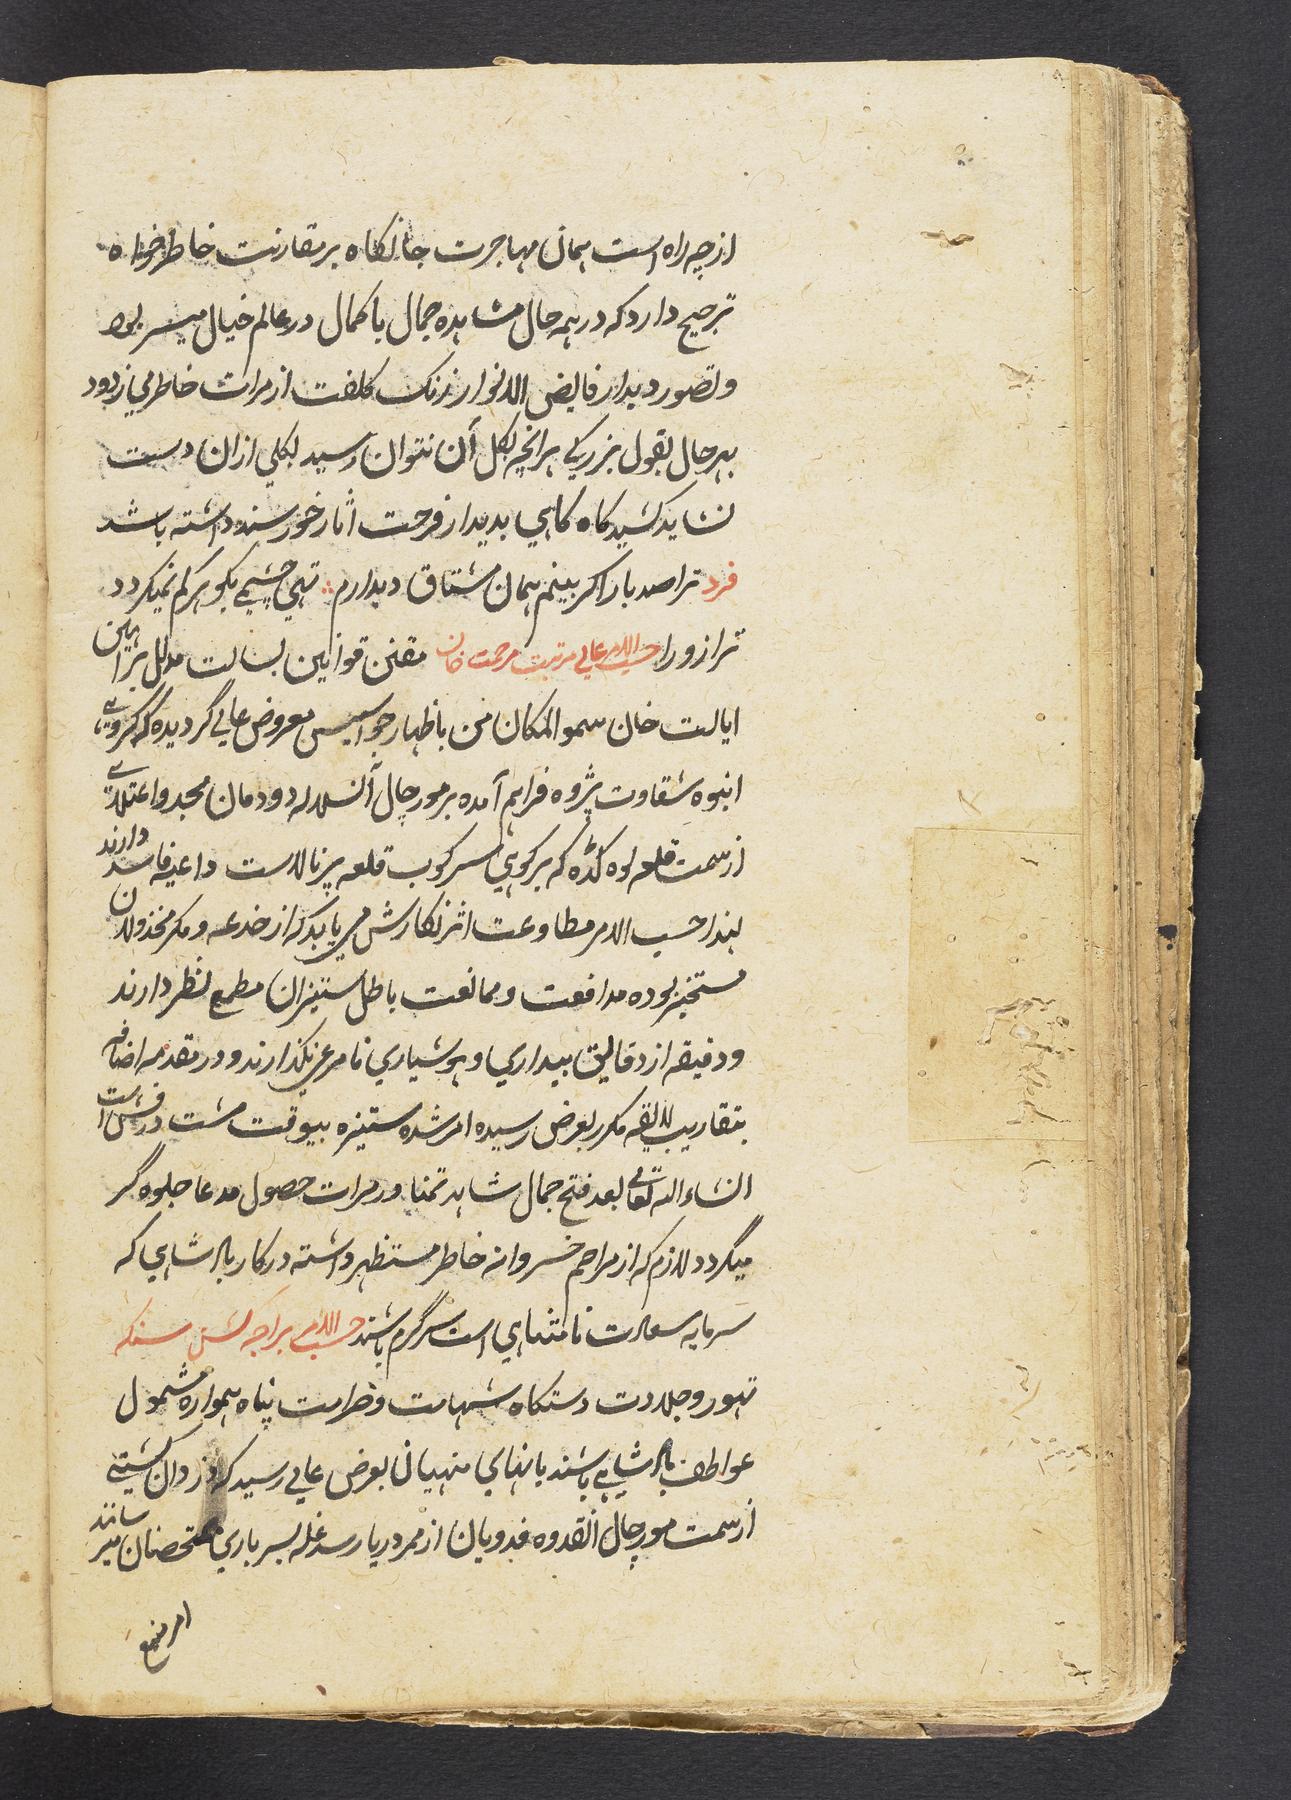 ازچه راه است همان مهاجرت جانکاه بر مقارنت خاطرخواه
ترجیح دارد که در همه حال مشاهده جمال باکمال در عالم خیال میسر بود
وتصور دیدار فایض الانوار زنک کلفت از مرات خاطر می زدود
بهرحال بقول بزرکی هرانچه بکل آن نتوان رسید بکلی ازان دست
نشاید کشید کاه کاهی بدیدار فرحت اثار خورسند داشته باشد
فرد ترا صد بار اکر بینم همان مشتاق دیدارم ؞ تهی چشمی بکوهر کم نمیکردد
ترازو را حسب الامر عالی مرتبت مرحمت خان مقنن قوانین بسالت مدلل براهین
ایالت خان سموالمکان من باظهار جواسیس معروض عالی گردیده که گروهی
انبوه شقاوت پژوه فراهم آمده بر مورچال آنسلاله دودمان مجد واعتلای
ازسمت قلعه لوه کده که بر کوهی سرکوب قلعه پرنالاست داعیه فاسد دارند
لهذا حسب الامر مطاوعت اثر نکارش می یابد که از خدعه و مکر مخذولان
متخبر بوده مدافعت و ممانعت باطل ستیزان مطمح نظر دارند
ودقیقه از دقایق بیداری و هوشیاری نامرعی نکذارند و در مقدمه اضافه
بتقاریب لایقه مکرر بعرض رسیده امر شده ستیزه بیوقت مشت در است
انشاءالله تعالی بعد فتح جمال شاهد تمنا در مرات حصول مدعا جلوه گر
میگردد لازم که از مراحم خسروانه خاطر مستظهر داشته در کار بادشاهی که
سرمایه سعادت نامتناهی است سرگرم باشند حسب الامر براجه کشن سنکه
تهور و جلادت دستکاه شهامت و صرامت پناه همواره مشمول
عواطف بادشاهی باشند بانهای منهیان بعرض عالی رسید که دزدان کشتی
ازسمت مورچال انقدوه فدویان از ممر دریا رسد غله بسرباری متحصنان میرسانند
امر منیع